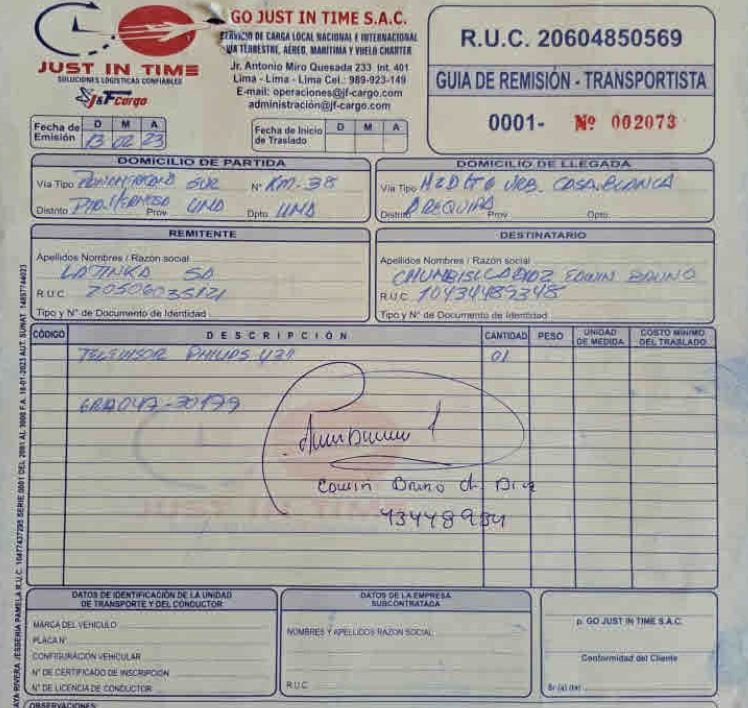 JUST IN TIME
SOLUCIONES LOGISTICAS CONFIABLES
J&F Cargo
GO JUST IN TIME S.A.C.
SERVICIO DE CARGA LOCAL NACIONAL E INTERNACIONAL
VIA TERRESTRE, AEREO, MARITIMA Y VUELO CHARTER
Jr. Antonio Miro Quesada 233 Int. 401
Lima - Lima - Lima Cel.: 989-923-149
E-mail: operaciones@jf-cargo.com
administración@jf-cargo.com
R.U.C. 20604850569
GUIA DE REMISIÓN - TRANSPORTISTA
0001- Nº 002073
Fecha de Emisión D M A 13 02 23
Fecha de Inicio de Traslado D M A
DOMICILIO DE PARTIDA
Via Tipo SUR Nº KM-38
Distrito Prov. LIMA Dpto. LIMA
DOMICILIO DE LLEGADA
Via Tipo URB. CASA BLANCA
Distrito AREQUIPA Prov. Dpto.
REMITENTE
Apellidos Nombres / Razón social
LA TINKA SA
R.U.C. 20506035121
Tipo y N° de Documento de Identidad
DESTINATARIO
Apellidos Nombres / Razón social
EDWIN BRUNO
R.U.C. 10434489348
Tipo y N° de Documento de Identidad
CÓDIGO DESCRIPCIÓN CANTIDAD PESO UNIDAD DE MEDIDA COSTO MINIMO DEL TRASLADO
TELEVISOR PHILIPS 01
Edwin Bruno
DATOS DE IDENTIFICACIÓN DE LA UNIDAD DE TRANSPORTE Y DEL CONDUCTOR
MARCA DEL VEHICULO
PLACA Nº
CONFIGURACIÓN VEHICULAR
N° DE CERTIFICADO DE INSCRIPCIÓN
N° DE LICENCIA DE CONDUCTOR
DATOS DE LA EMPRESA SUBCONTRATADA
NOMBRES Y APELLIDOS RAZON SOCIAL:
R.U.C.
p. GO JUST IN TIME S.A.C.
Conformidad del Cliente
Sr.(a) (ita)
OBSERVACIONES: